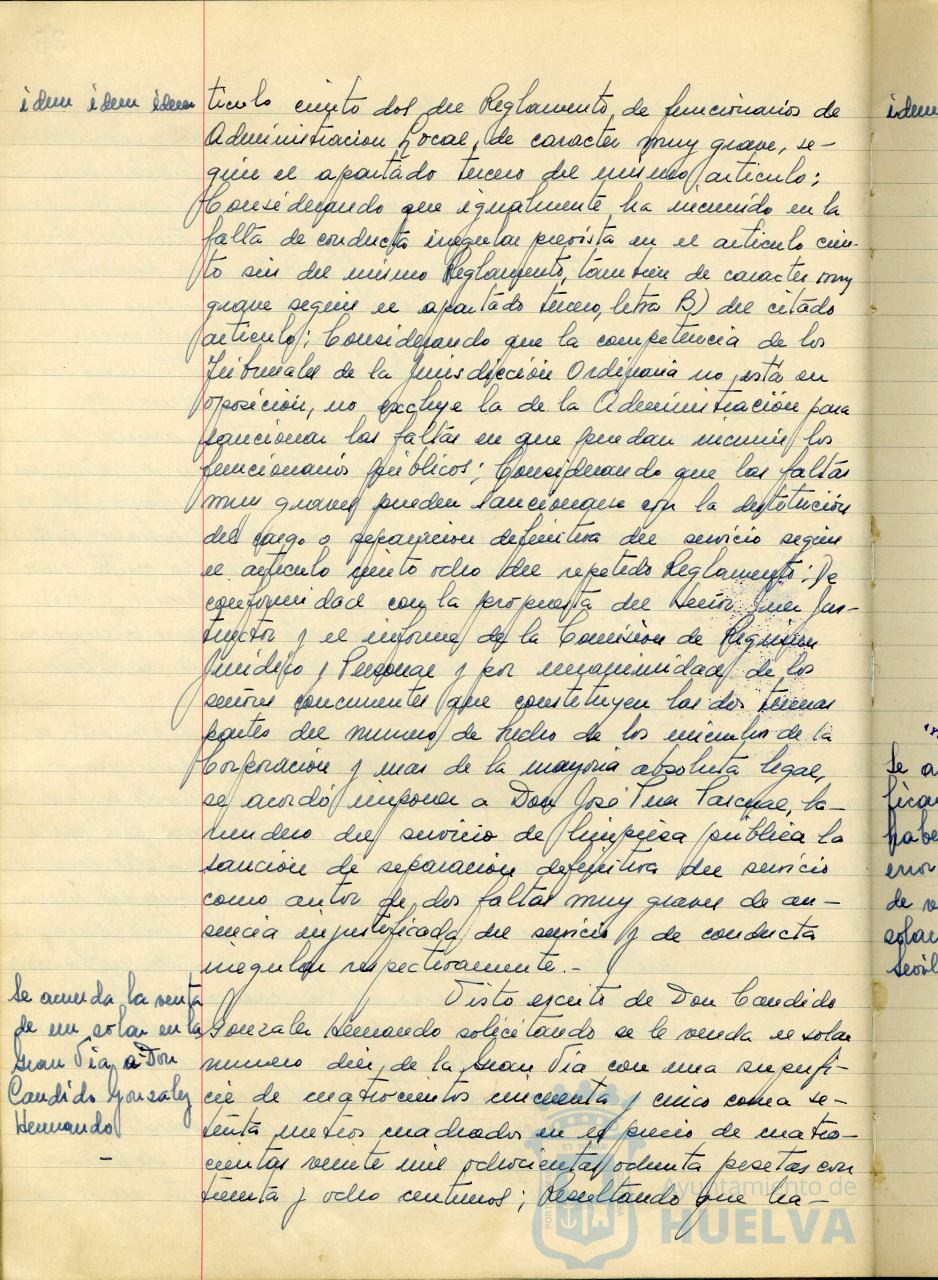 idem idem idem
ticulo ciento dos del Reglamento de funcionarios de
Administracion Local, de caracter muy grave, se-
gún el apartado tercero del mismo articulo;
Considerando que igualmente ha incurrido en la
falta de conducta irregular prevista en el articulo cien-
to seis del mismo Reglamento, tambien de caracter muy
grave según el apartado tercero, letra B) del citado
articulo; Considerando que la competencia de los
Tribunales de la Jurisdicción Ordinaria no está en
oposición, no excluye la de la Administración para
sancionar las faltas en que puedan incurrir los
funcionarios públicos; Considerando que las faltas
muy graves pueden sancionarse con la destitución
del cargo o separacion definitiva del servicio según
el articulo ciento ocho del repetido Reglamento; De
conformidad con la propuesta del señor Juez Ins-
tructor y el informe de la Comisión de Regimen
Jurídico y Personal y por unanimidad de los
señores concurrentes que constituyen las dos terceras
partes del numero de hecho de los miembros de la
Corporación y mas de la mayoria absoluta legal,
se acordó imponer a Don José Pascual, ba-
rrendero del servicio de limpieza pública la
sanción de separación definitiva del servicio
como autor de dos faltas muy graves de au-
sencia injustificada del servicio y de conducta
irregular respectivamente.-
Se acuerda la venta
de un solar en la
Gran Via, a Don
Candido Gonzalez
Hernando
-
Visto escrito de Don Candido
Gonzalez Hernando solicitando se le venda el solar
numero diez de la Gran Via con una superfi-
cie de cuatrocientos cincuenta y cinco coma se-
tenta metros cuadrados en el precio de cuatro-
cientas veinte mil ochocientas ochenta pesetas con
treinta y ocho centimos; Resultando que ha-
idem
Se a
ficar
habe
error
de v
solar
Sevil
Ayuntamiento de
HUELVA